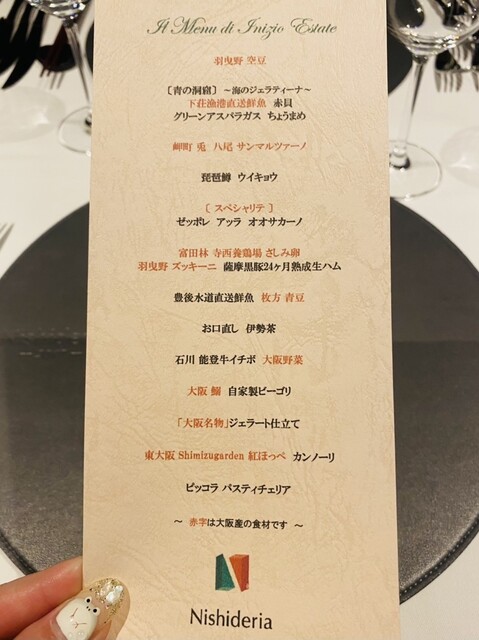 Il Menu di Inizio Estate
羽曳野 空豆
〔青の洞窟〕 ～海のジェラティーナ～
下荘漁港直送鮮魚 赤貝
グリーンアスパラガス ちょうまめ
岬町 兎 八尾 サンマルツァーノ
琵琶鱒 ウイキョウ
〔 スペシャリテ 〕
ゼッポレ アッラ オオサカーノ
富田林 寺西養鶏場 さしみ卵
羽曳野 ズッキーニ 薩摩黒豚24ヶ月熟成生ハム
豊後水道直送鮮魚 枚方 青豆
お口直し 伊勢茶
石川 能登牛イチボ 大阪野菜
大阪 鰯 自家製ビーゴリ
「大阪名物」ジェラート仕立て
東大阪 Shimizugarden 紅ほっぺ カンノーリ
ピッコラ パスティチェリア
～ 赤字は大阪産の食材です ～
Nishideria